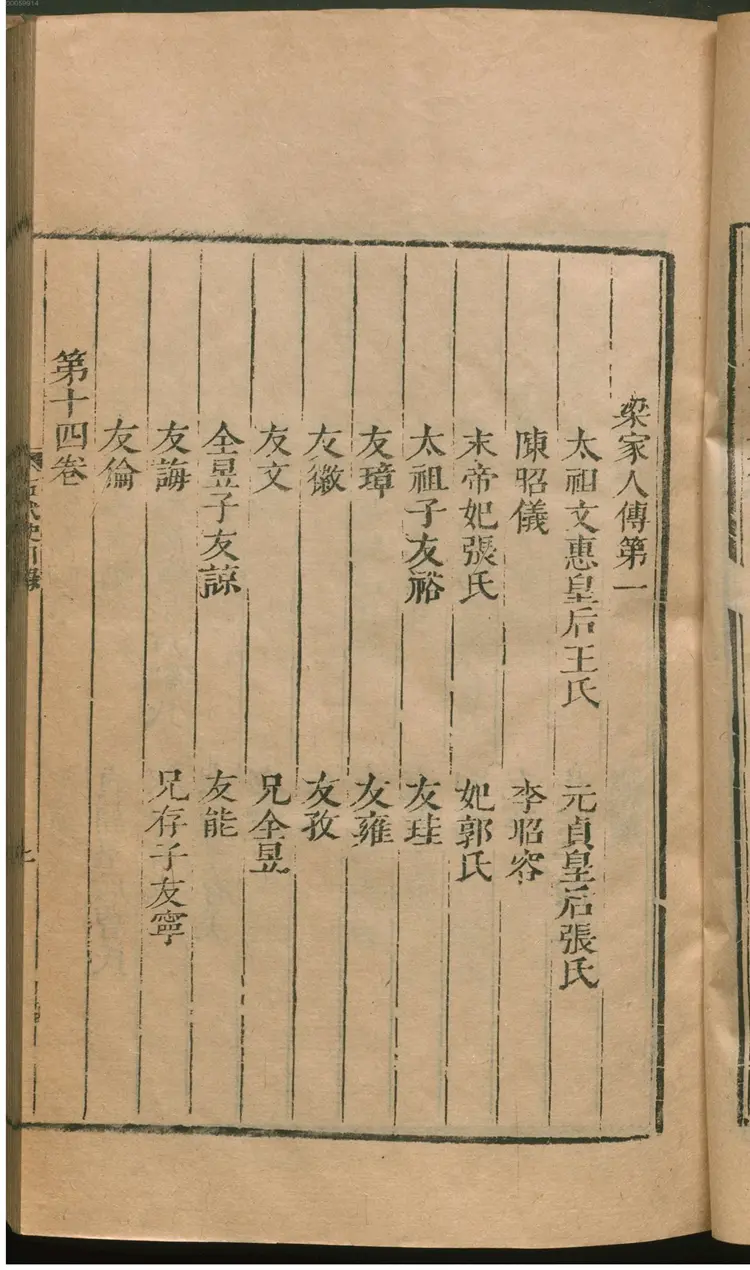 梁家人傳第一
太祖文惠皇后王氏 元貞皇后張氏
陳昭儀 李昭容
末帝妃張氏 妃郭氏
太祖子友裕 友珪
友璋 友雍
友徽 友孜
友文 兄全昱
全昱子友諒 友能
友誨 兄存子友寧
友倫
第十四卷